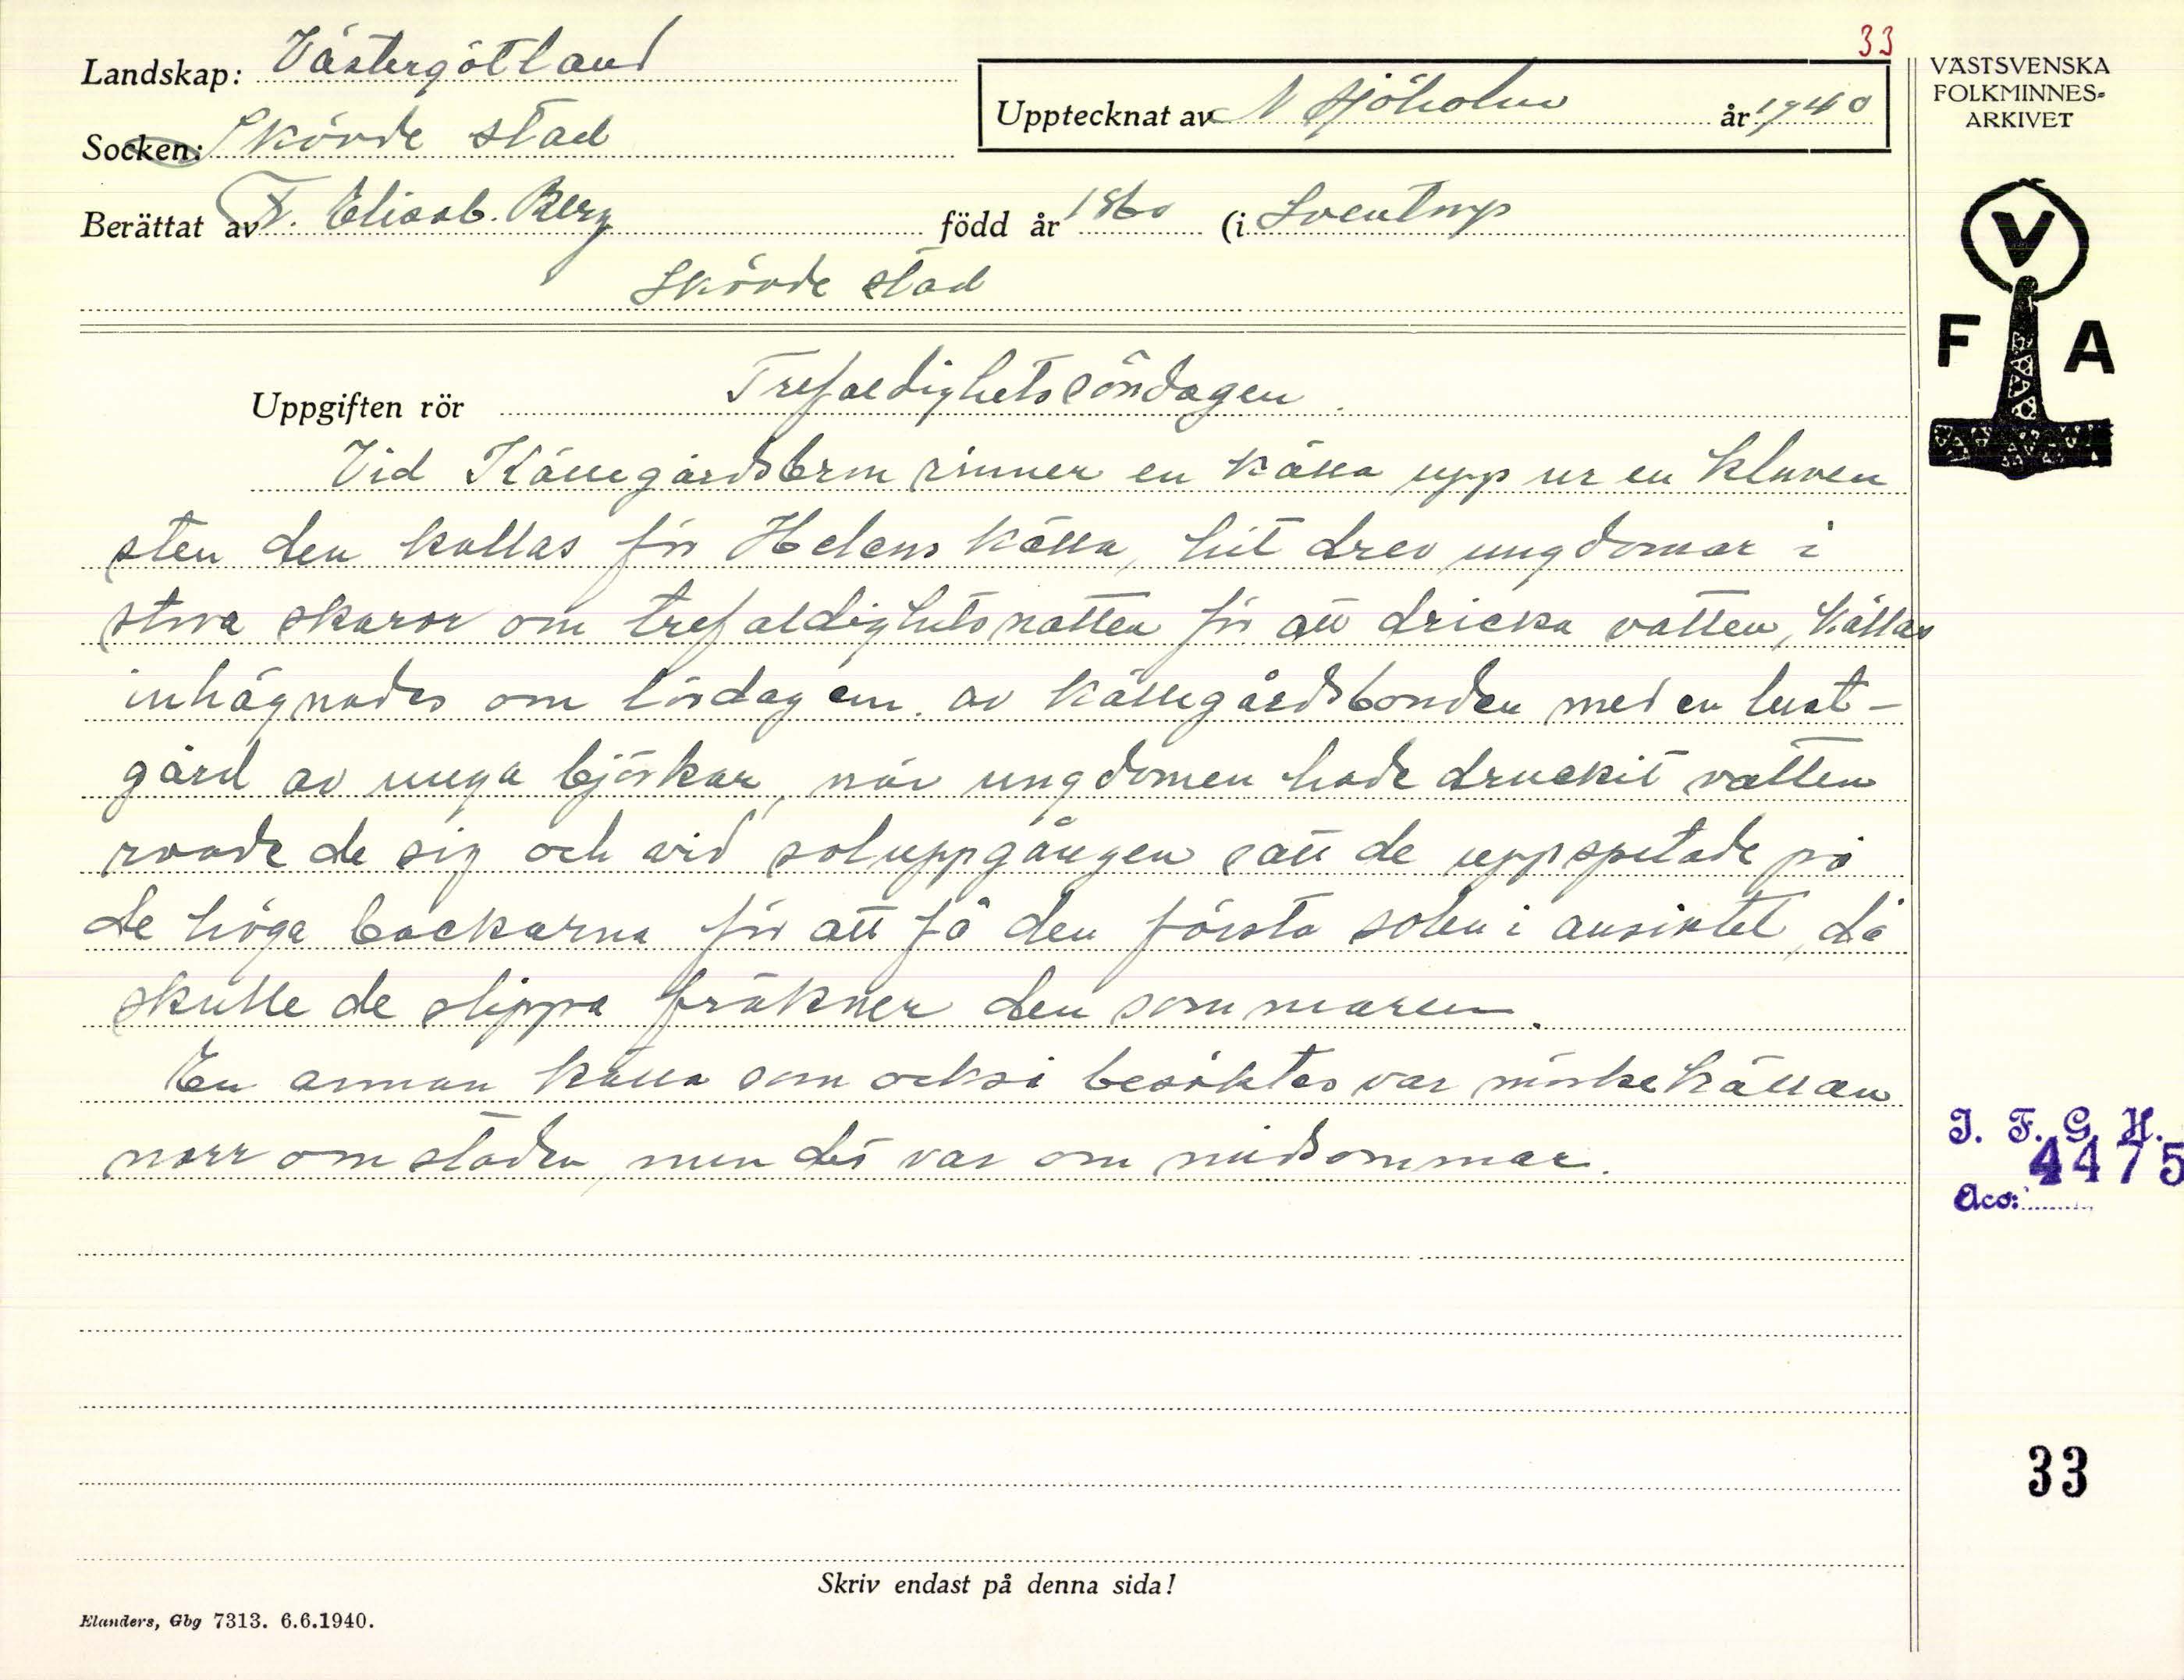 33
Landskap: Västergötland
Upptecknat av N Sjöholm år 1940
Socken: Skövde stad
Berättat av Fr. Elisab. Berg född år 1860 (i Sventorp
Skövde stad
Uppgiften rör Trefaldighetssöndagen.
Vid Källegårdsbrm rinner en källa upp ur en kluven
sten den kallas för Helens källa, hit drev ungdomar i
stora skaror om trefaldighetsnatten för att dricka vatten, källan
inhägnades om lördag em. av källegårdsbonden med en lust-
gård av unga björkar, när ungdomen hade druckit vatten
roade de sig och vid soluppgången satt de uppspetade på
de höga backarna för att få den första solen i ansiktet, då
skulle de slippa fräkner den sommaren.
En annan källa som också besöktes var mörkekällan
norr om staden men det var om midsommar.
Skriv endast på denna sida!
Elanders, Gbg 7313. 6.6.1940.
VÄSTSVENSKA
FOLKMINNES-
ARKIVET
V
F A
I. F. G. H.
4475
Acc:
33